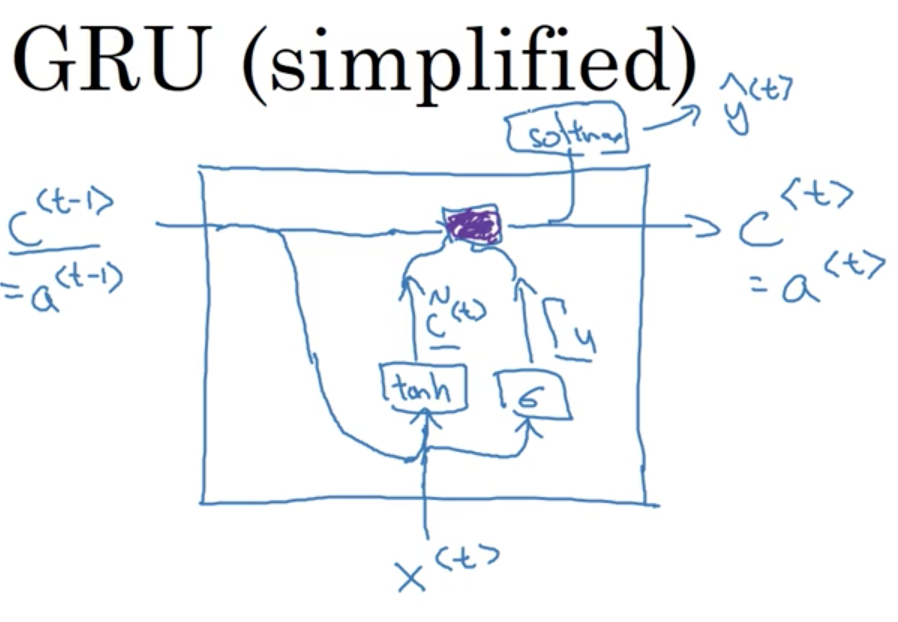 GRU (simplified)
ŷ<t>
softmax
c<t-1>
= a<t-1>
c<t>
= a<t>
c̃<t>
Γu
tanh
σ
x<t>